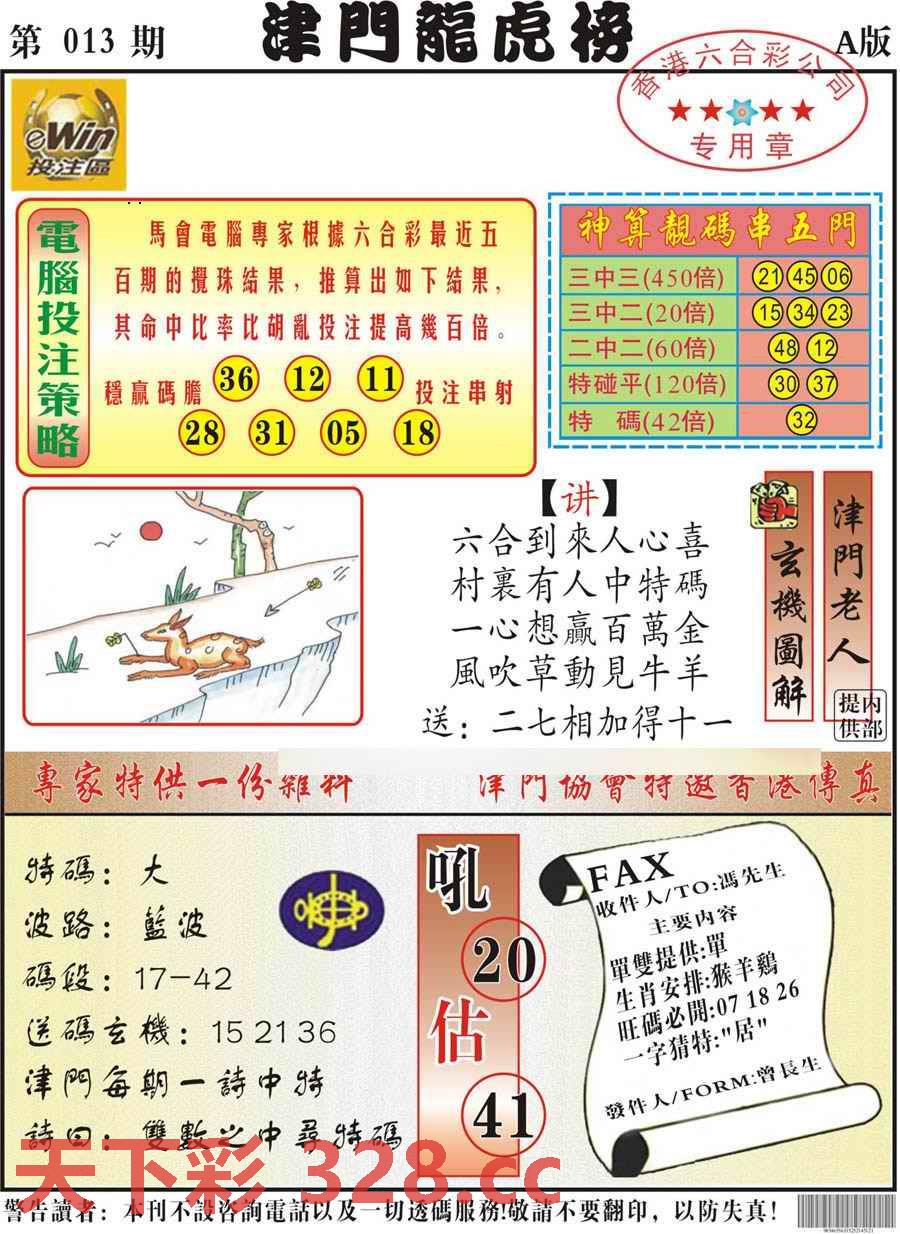 第 013 期
津門龍虎榜
A版
香港六合彩公司
专用章
eWin
投注區
電腦投注策略
馬會電腦專家根據六合彩最近五
百期的攪珠結果，推算出如下結果，
其命中比率比胡亂投注提高幾百倍。
穩贏碼膽 36 12 11 投注串射
28 31 05 18
神算靚碼串五門
三中三(450倍) 21 45 06
三中二(20倍) 15 34 23
二中二(60倍) 48 12
特碰平(120倍) 30 37
特 碼(42倍) 32
【讲】
六合到來人心喜
村裏有人中特碼
一心想贏百萬金
風吹草動見牛羊
送：二七相加得十一
玄機圖解
津門老人
内部提供
專家特供一份雜料
津門協會特邀香港傳真
特碼：大
波路：藍波
碼段：17-42
送碼玄機：15 21 36
津門每期一詩中特
詩曰：雙數之中尋特碼
吼
20
估
41
FAX
收件人/TO:馮先生
主要内容
單雙提供:單
生肖安排:猴羊鷄
旺碼必開:07 18 26
一字猜特:"居"
發件人/FORM:曾長生
天下彩 328.cc
警告讀者：本刊不設咨詢電話以及一切透碼服務!敬請不要翻印，以防失真！